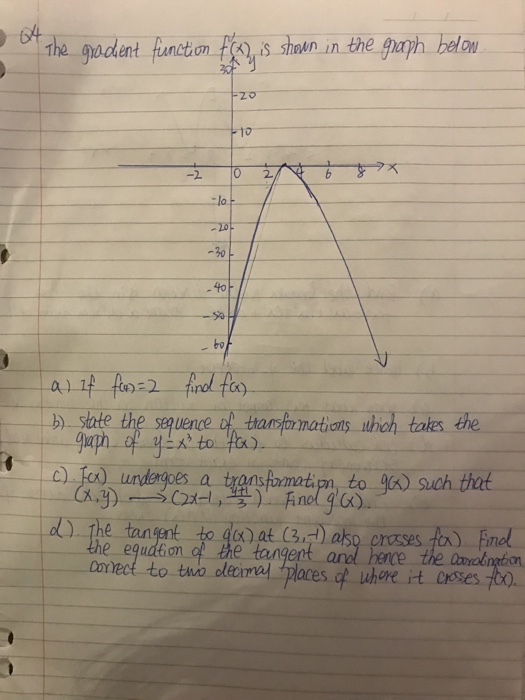 Q4 The gradient function f'(x) is shown in the graph below
30 y
20
10
-2 0 2 4 6 8 x
-10
-20
-30
-40
-50
-60
a) If f(4)=2 find f(x)
b) state the sequence of transformations which takes the
graph of y=x³ to f(x).
c) f(x) undergoes a transformation to g(x) such that
(x,y) → (2x-1, y+1/3). Find g'(x).
d) The tangent to g(x) at (3,-1) also crosses f(x) Find
the equation of the tangent and hence the
correct to two decimal places of where it crosses f(x).